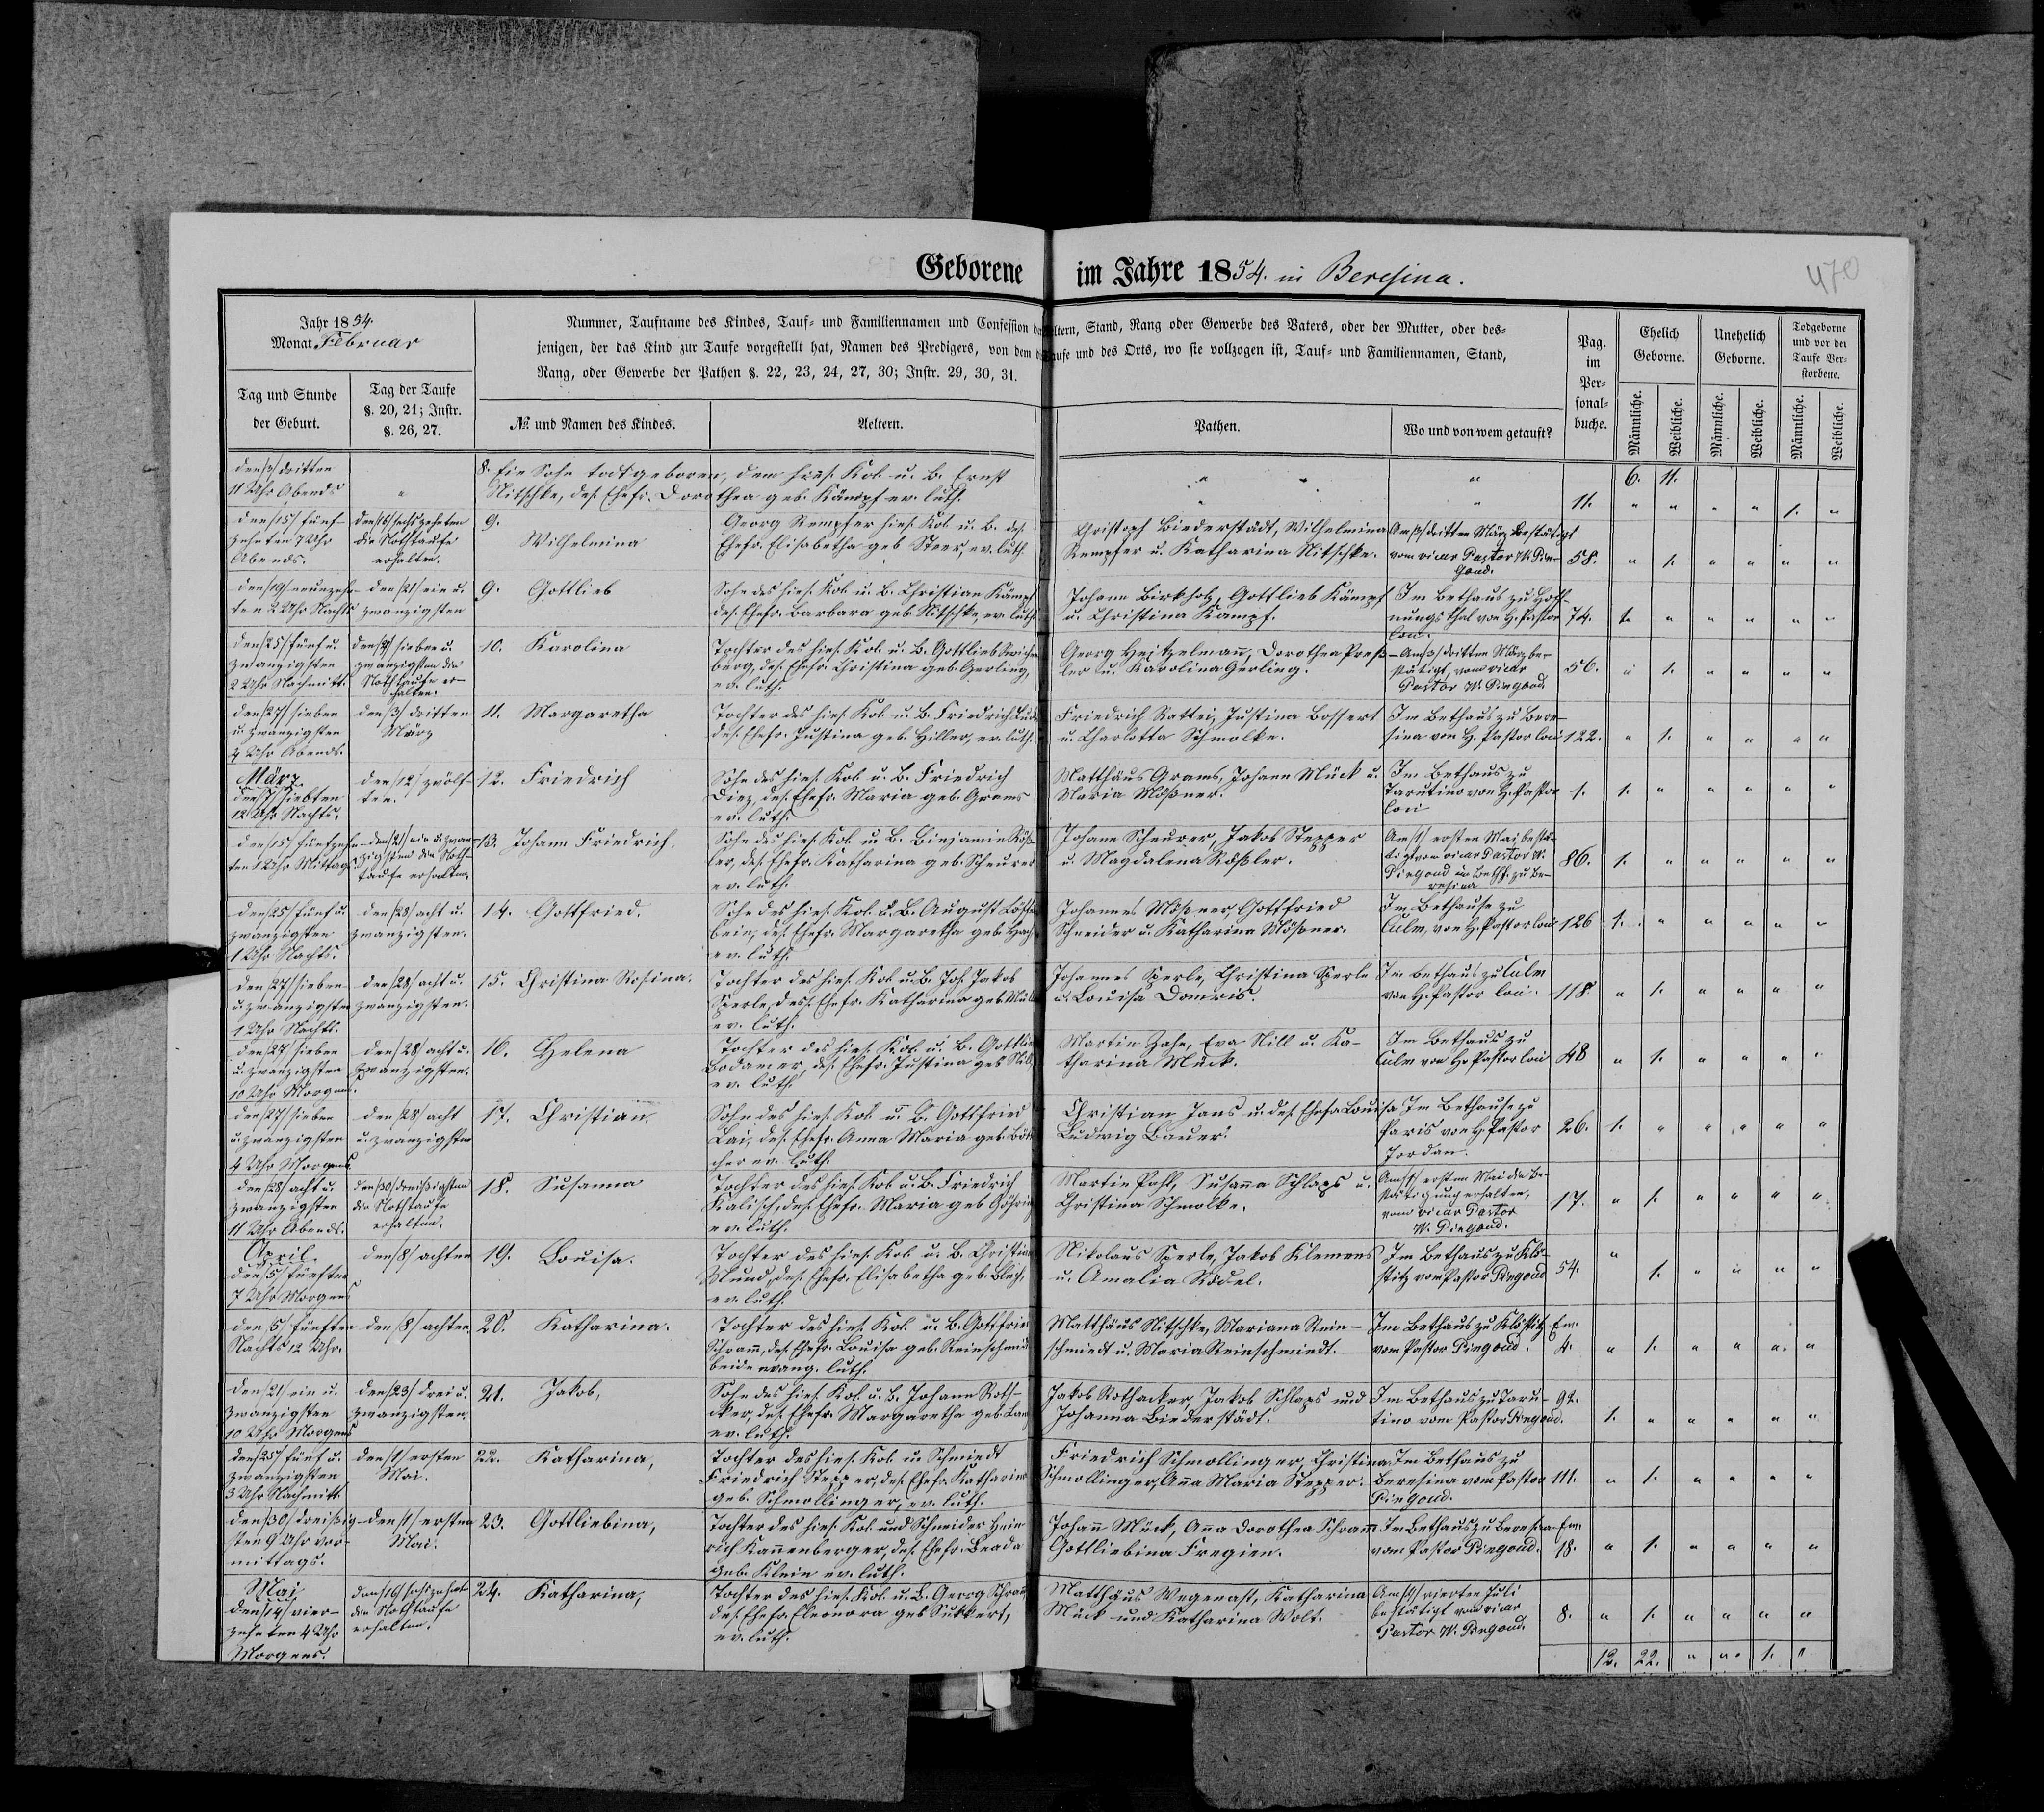 Geborene im Jahre 1854. in Beresina.
470
Jahr 1854.
Monat Februar
Nummer, Taufname des Kindes, Tauf- und Familiennamen und Confession der Aeltern, Stand, Rang oder Gewerbe des Vaters, oder der Mutter, oder des-
jenigen, der das Kind zur Taufe vorgestellt hat, Namen des Predigers, von dem die Taufe und des Orts, wo sie vollzogen ist, Tauf- und Familiennamen, Stand,
Rang, oder Gewerbe der Pathen §. 22, 23, 24, 27, 30; Instr. 29, 30, 31.
Pag.
im
Per-
sonal-
buche.
Ehelich
Geborne.
Unehelich
Geborne.
Todgeborne
und vor der
Taufe Ver-
storbene.
Tag und Stunde
der Geburt.
Tag der Taufe
§. 20, 21; Instr.
§. 26, 27.
№ und Namen des Kindes.
Aeltern.
Pathen.
Wo und von wem getauft?
Männliche.
Weibliche.
Männliche.
Weibliche.
Männliche.
Weibliche.
den /3/ dritten
11 Uhr Abends
8. Ein Sohn todtgeboren, dem hies. Kol. u. B. Ernst
Nitschke, des. Ehefr. Dorothea geb. Kämpf ev. luth.
6. 11.
11. " " " " 1. "
den /15/ fünf-
zehnten 7 Uhr
Abends.
den /16/ sechszehnten
die Nothtaufe
erhalten.
9.
Wilhelmina
Georg Rempfer hies. Kol. u. B. des.
Ehefr. Elisabetha geb. Steer, ev. luth.
Christoph Biederstädt, Wilhelmina
Rempfer u. Katharina Nitschke.
Am /3/ dritten März bestätigt
vom vicar Pastor W. Pin-
goud.
58. " 1. " " " "
den /19/ neunzehn-
ten 2 Uhr Nachts
den /21/ ein u.
zwanzigsten
9. Gottlieb
Sohn des hies. Kol. u. B. Christian Kämpf
des. Ehefr. Barbara geb. Nitschke, ev. luth.
Johann Birkholz, Gottlieb Kämpf
u. Christina Kämpf.
Im Bethaus zu Hoff-
nungsthal von H. Pastor
loci.
74. 1. " " " " "
den /25/ fünf u.
zwanzigsten
2 Uhr Nachmitt.
den /27/ sieben u.
zwanzigsten die
Nothtaufe er-
halten.
10. Karolina
Tochter des hies. Kol. u. B. Gottlieb
berg, des. Ehefr. Christina geb. Gerling,
ev. luth.
Georg Heitzelmann, Dorothea Preß-
ler u. Karolina Gerling.
Am /3/ dritten März be-
stätigt, vom vicar
Pastor W. Pingoud.
56. " 1. " " " "
den /27/ sieben
u. zwanzigsten
4 Uhr Abends.
den /3/ dritten
März
11. Margaretha
Tochter des hies. Kol. u. B. Friedrich
des. Ehefr. Justina geb. Hiller, ev. luth.
Friedrich Rattei, Justina Bossert
u. Charlotta Schmolke.
Im Bethaus zu Bere-
sina von H. Pastor loci
122. " 1. " " " "
März
den /7/ siebten
12 Uhr Nachts.
den /12/ zwölf-
ten.
12. Friedrich
Sohn des hies. Kol. u. B. Friedrich
Diez, des. Ehefr. Maria geb. Grams
ev. luth.
Matthäus Grams, Johann Mück u.
Maria Mößner.
Im Bethaus zu
Tarutino von H. Pastor
loci
1. 1. " " " " "
den /15/ fünfzehn-
ten 1 Uhr Mittags
den /21/ ein u. zwan-
zigsten die Noth-
taufe erhalten.
13. Johann Friedrich.
Sohn des hies. Kol. u. B. Binjamin Röß-
ler, des. Ehefr. Katharina geb. Scheurer
ev. luth.
Johann Scheurer, Jakob Stepper
u. Magdalena Rößler.
Am /1/ ersten Mai bestä-
tigt vom vicar Pastor W.
Pingoud im Beth. zu Be-
resina
86. 1. " " " " "
den /25/ fünf u.
zwanzigsten
1 Uhr Nachts.
den /28/ acht u.
zwanzigsten.
14. Gottfried.
Sohn des hies. Kol. u. B. August
bein, des. Ehefr. Margaretha geb.
ev. luth.
Johannes Mößner, Gottfried
Schneider u. Katharina Mößner.
Im Bethause zu
Culm, von H. Pastor loci
126 1. " " " " "
den /27/ sieben
u. zwanzigsten
1 Uhr Nachts.
den /28/ acht u.
zwanzigsten.
15. Christina Rosina.
Tochter des hies. Kol. u. B. Joh. Jakob
Sperle, des. Ehefr. Katharina geb.
ev. luth.
Johannes Sperle, Christina Sperle
u. Louisa Domris.
Im Bethaus zu Culm
von H. Pastor loci.
118. " 1. " " " "
den /27/ sieben
u. zwanzigsten
10 Uhr Morgens.
den /28/ acht u.
zwanzigsten.
16. Helena
Tochter des hies. Kol. u. B. Gottlieb
Bodamer, des. Ehefr. Justina geb. Nill,
ev. luth.
Martin Hahn, Eva Nill u. Ka-
tharina Mück.
Im Bethaus zu
Culm von H. Pastor loci
48 " 1. " " " "
den /27/ sieben
u. zwanzigsten
4 Uhr Morgens.
den /28/ acht
u. zwanzigsten
17. Christian.
Sohn des hies. Kol. u. B. Gottfried
Lai, des. Ehefr. Anna Maria geb. Bött-
cher ev. luth.
Christian Jans u. des. Ehefr. Louisa
Ludwig Bauer.
Im Bethause zu
Paris von H. Pastor
Jordan.
26. 1. " " " " "
den /28/ acht u.
zwanzigsten
11 Uhr Abends.
den /30/ dreißigsten
die Nothtaufe
erhalten.
18. Susanna
Tochter des hies. Kol. u. B. Friedrich
Kalisch, des. Ehefr. Maria geb. Göhring
ev. luth.
Martin Pahl, Susanna Schlaps u.
Christina Schmolke.
Am /1/ ersten Mai die Be-
stätigung erhalten,
vom vicar Pastor
W. Pingoud.
17. " 1. " " " "
April.
den /5/ fünften
7 Uhr Morgens
den /8/ achten
19. Louisa.
Tochter des hies. Kol. u. B. Christian
Mund, des. Ehefr. Elisabetha geb. Blech,
ev. luth.
Nikolaus Sperle, Jakob Klemens
u. Amalia Rödel.
Im Bethaus zu Klö-
stitz vom Pastor Pingoud
54. " 1. " " " "
den /5/ fünften
Nachts 12 Uhr.
den /8/ achten.
20. Katharina.
Tochter des hies. Kol. u. B. Gottfried
Schramm, des. Ehefr. Louisa geb. Steinschmidt
beide evang. luth.
Matthäus Nitschke, Mariana Stein-
schmiedt u. Maria Steinschmiedt.
Im Bethaus zu Klöstitz
vom Pastor Pingoud.
4. " 1. " " " "
den /21/ ein u.
zwanzigsten
10 Uhr Morgens
den /23/ drei u.
zwanzigsten.
21. Jakob,
Sohn des hies. Kol. u. B. Johann Roth-
acker, des. Ehefr. Margaretha geb.
ev. luth.
Jakob Rothacker, Jakob Schlaps und
Johanna Biederstädt.
Im Bethaus zu Taru-
tino vom Pastor Pingoud.
92. 1. " " " " "
den /25/ fünf u.
zwanzigsten
3 Uhr Nachmitt
den /1/ ersten
Mai.
22. Katharina,
Tochter des hies. Kol. u. Schmiedt
Friedrich Stepper, des. Ehefr. Katharina
geb. Schmollinger, ev. luth.
Friedrich Schmollinger, Christina
Schmollinger, Anna Maria Stepper.
Im Bethaus zu
Beresina vom Pastor
Pingoud.
111. " 1. " " " "
den /30/ dreißig-
sten 9 Uhr vor-
mittags.
den /1/ ersten
Mai.
23. Gottliebina,
Tochter des hies. Kol. und Schneider Hein-
rich Kannenberger, des. Ehefr. Beada
geb. Klein ev. luth.
Johann Mück, Anna Dorothea Schramm
Gottliebina Fregien.
Im Bethaus zu Beresina
vom Pastor Pingoud.
18. " 1. " " " "
Mai
den /14/ vier-
zehnten 4 Uhr
Morgens.
den /16/ sechszehnten
die Nothtaufe
erhalten.
24. Katharina,
Tochter des hies. Kol. u. B. Georg Schramm
des. Ehefr. Eleonora geb. Sükkert,
ev. luth.
Matthäus Wegenast, Katharina
Mück und Katharina Wolt.
Am /4/ vierten Juli
bestätigt vom vicar
Pastor W. Pingoud.
8. " 1. " " " "
12. 22. " " 1. "